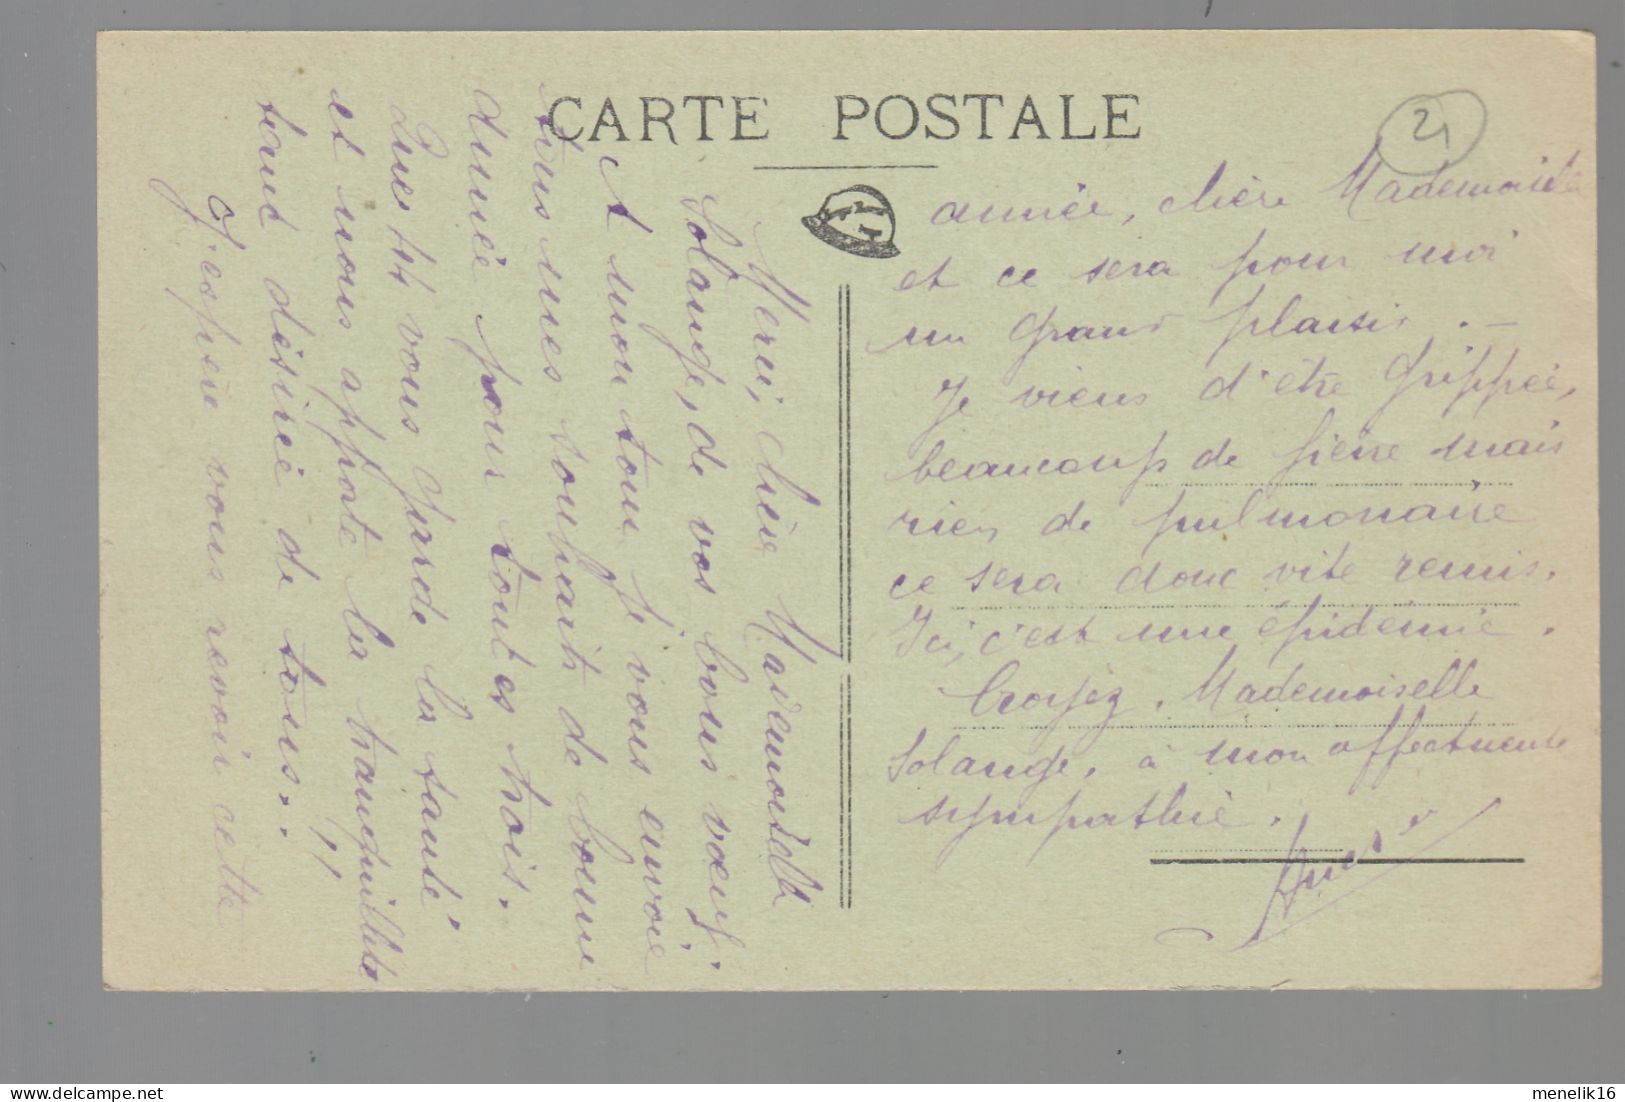 CARTE POSTALE
21
Merci, chère Mademoiselle
Solange, de vos bons vœux.
A mon tour je vous envoie
tous mes souhaits de bonne
année pour toutes trois.
Que 1944 vous garde la santé
et nous apporte la tranquillité
tant désirée de tous.
J'espère vous revoir cette
année, chère Mademoiselle
et ce sera pour moi
un grand plaisir. –
Je viens d'être grippée,
beaucoup de fièvre mais
rien de pulmonaire
ce sera donc vite remis.
Ici, c'est une épidémie.
Croyez, Mademoiselle
Solange, à mon affectueuse
sympathie.
delcampe.net
menelik16